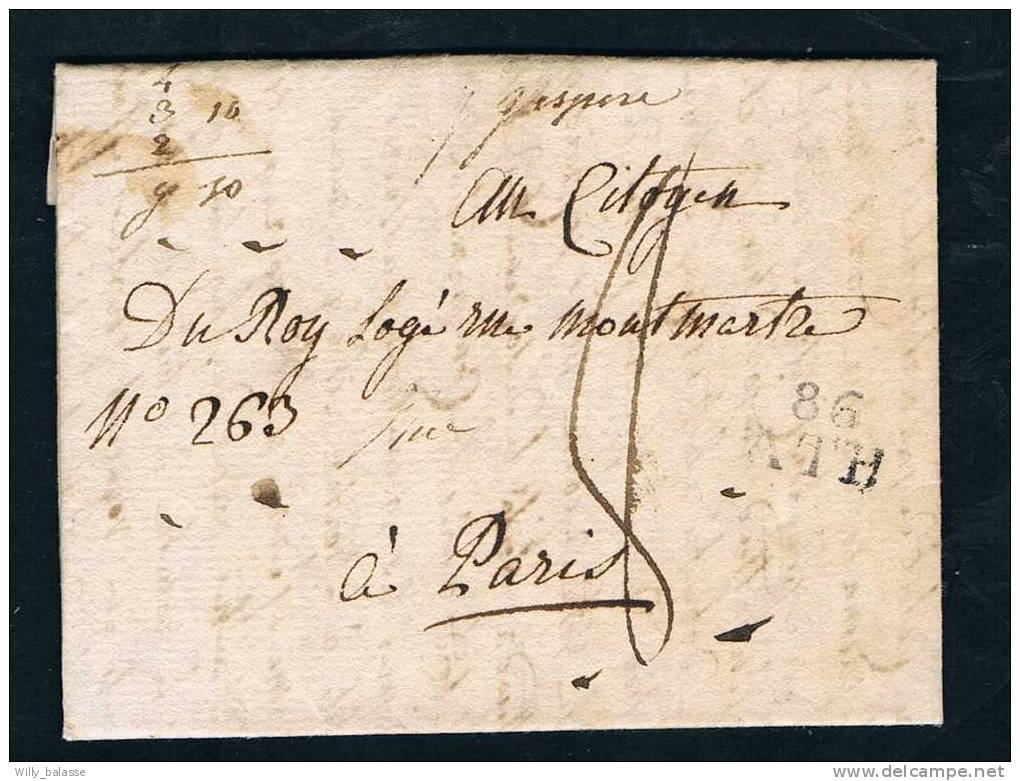 4
3 10
2
9 10
au Citoyen
Du Roy Logé rue montmartre
No 263
à Paris
86
ATH
Willy_balasse
delcampe.net